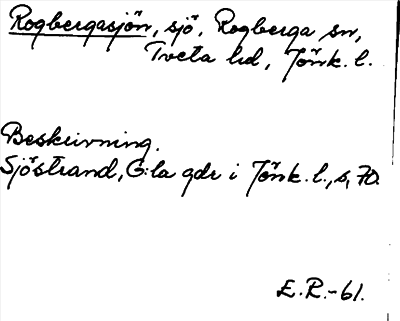 Rogbergasjön, sjö, Rogberga sn,
Tveta hd, Jönk. l.
Beskrivning.
Sjöstrand, G:la gdr i Jönk. l., s, 70.
E.R.-61.